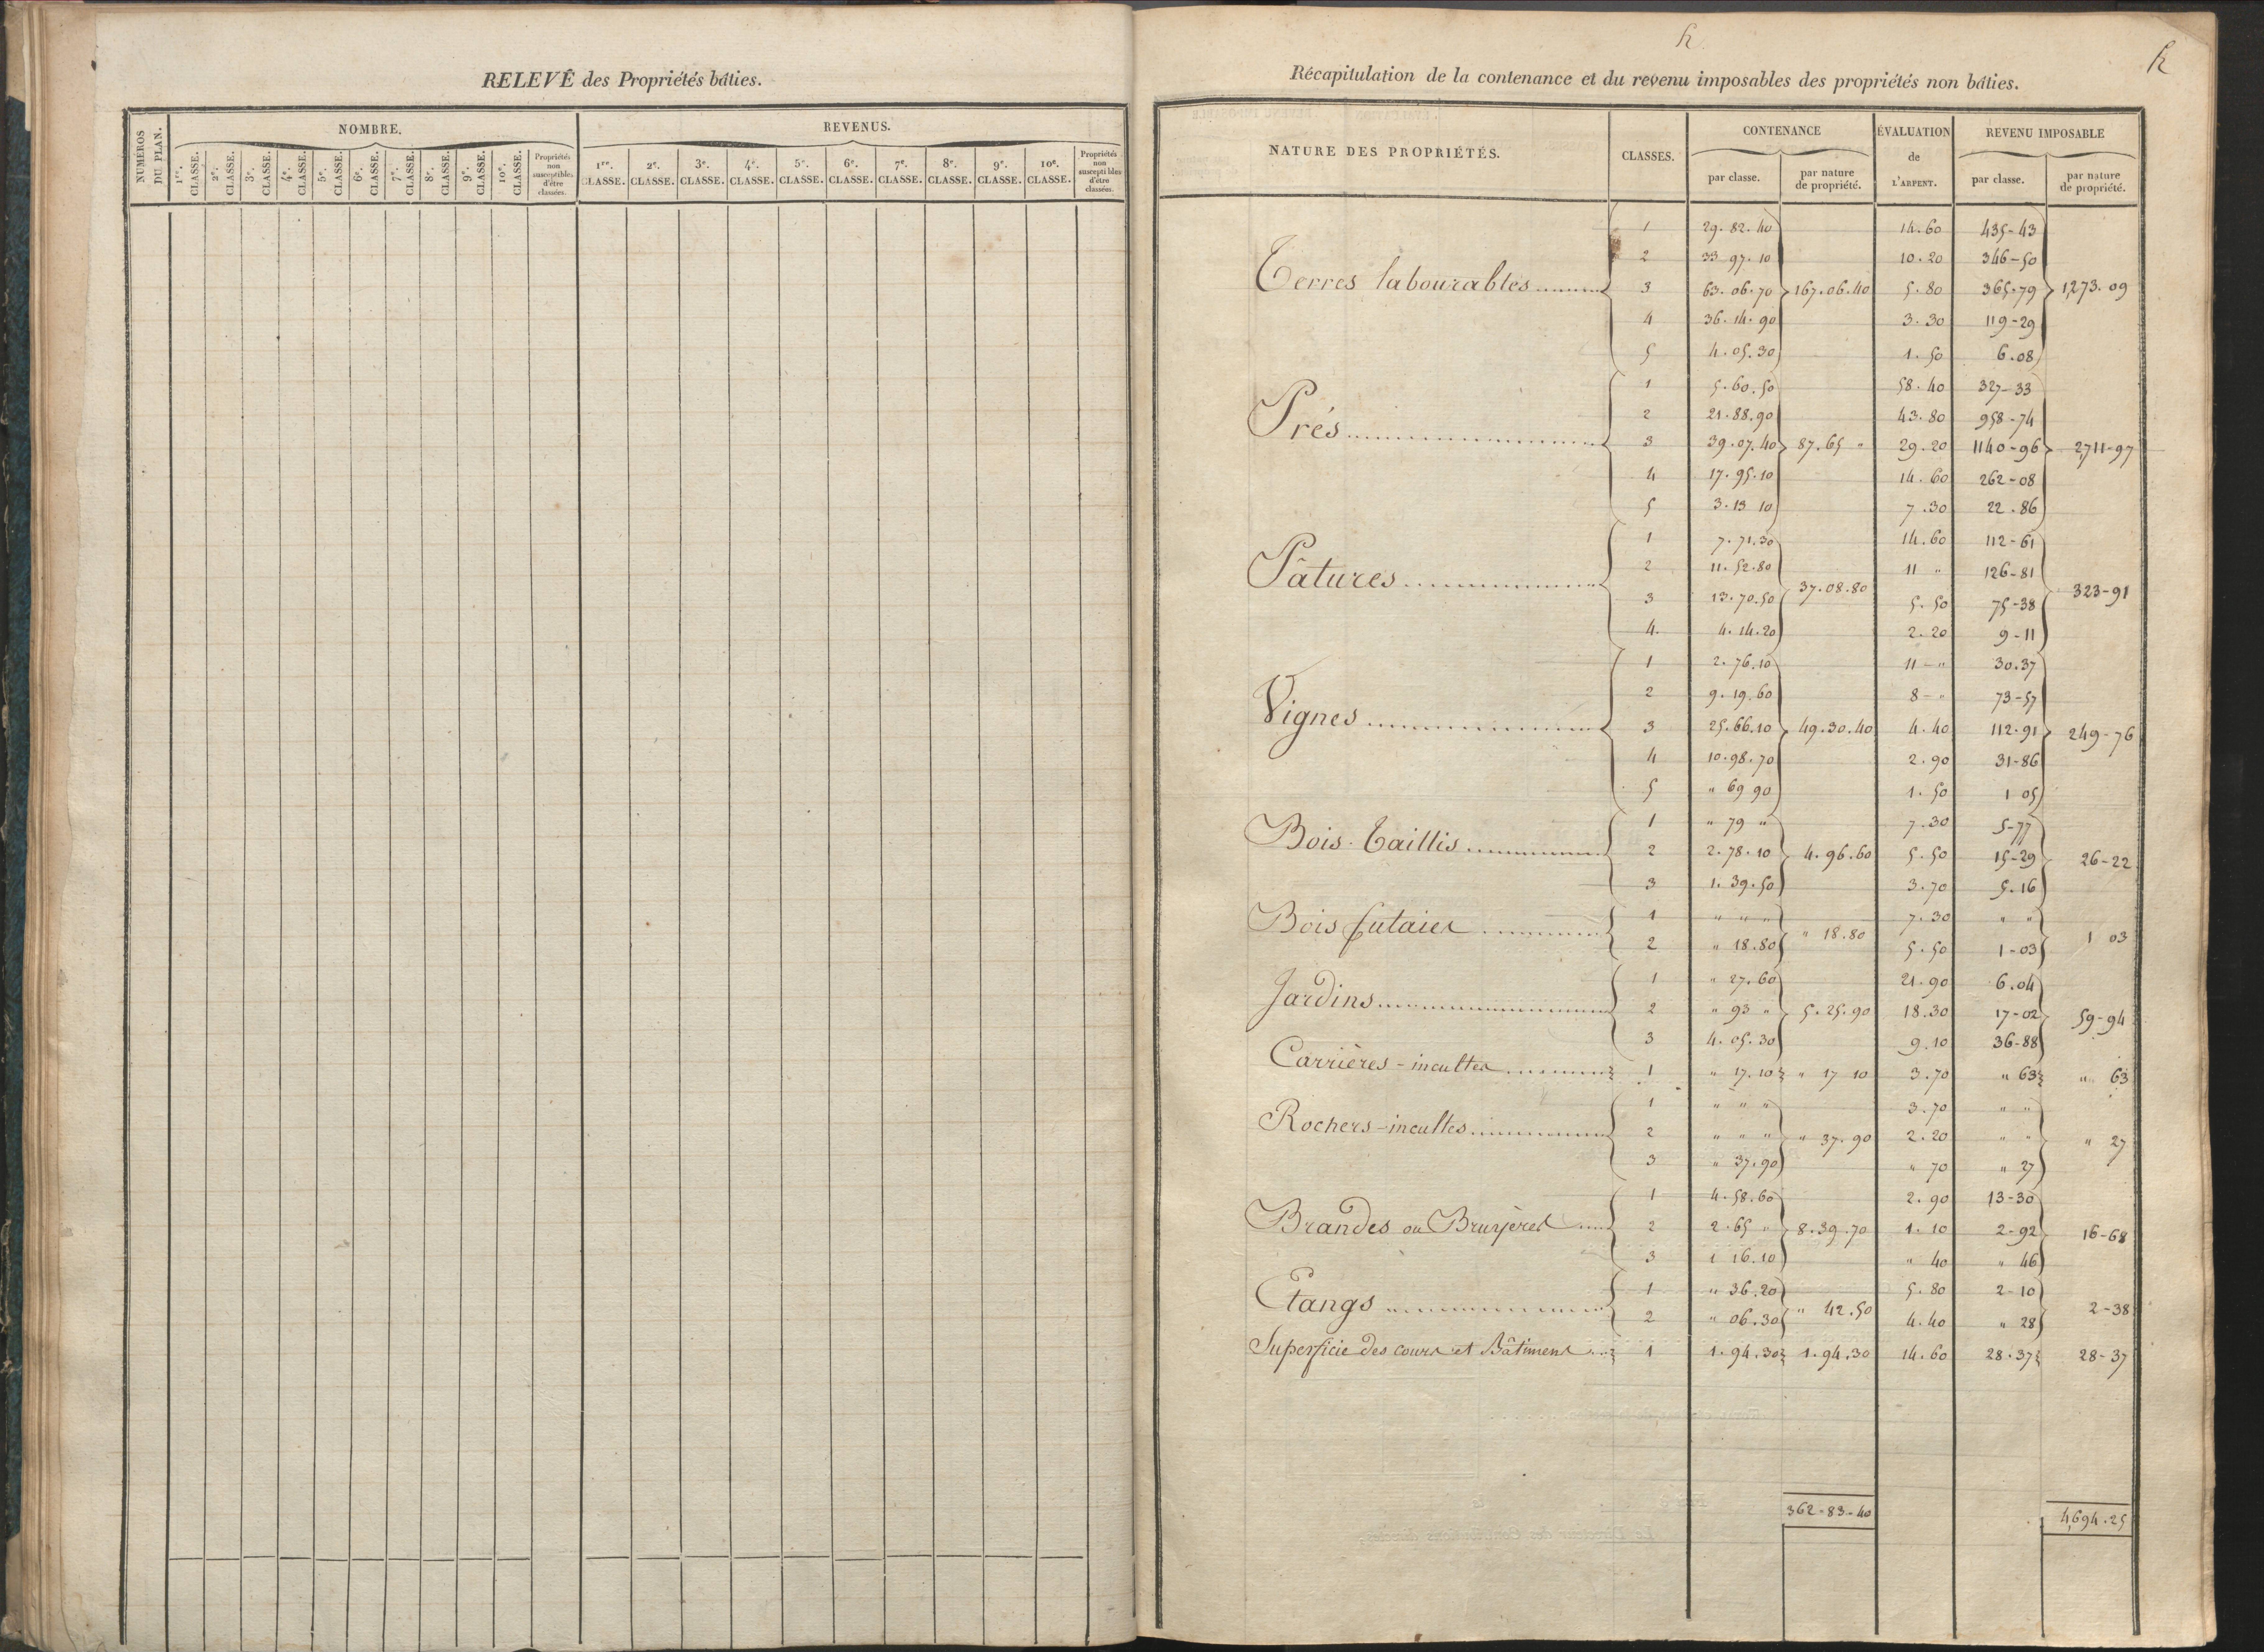 RELEVÉ des Propriétés bâties.
NUMÉROS DU PLAN.
NOMBRE.
REVENUS.
1re. CLASSE. 2e. CLASSE. 3e. CLASSE. 4e. CLASSE. 5e. CLASSE. 6e. CLASSE. 7e. CLASSE. 8e. CLASSE. 9e. CLASSE. 10e. CLASSE. Propriétés non susceptibles d'être classées.
1re. CLASSE. 2e. CLASSE. 3e. CLASSE. 4e. CLASSE. 5e. CLASSE. 6e. CLASSE. 7e. CLASSE. 8e. CLASSE. 9e. CLASSE. 10e. CLASSE. Propriétés non susceptibles d'être classées.
Récapitulation de la contenance et du revenu imposables des propriétés non bâties.
NATURE DES PROPRIÉTÉS. CLASSES. CONTENANCE ÉVALUATION de L'ARPENT. REVENU IMPOSABLE
par classe. par nature de propriété. par classe. par nature de propriété.
1 29.82.40 14.60 435-43
2 33 97.10 10.20 346-50
Terres labourables 3 63.06.70 167.06.40 5.80 365.79 1,273.09
4 36.14.90 3.30 119-29
5 4.05.30 1.50 6.08
1 5.60.50 58.40 327-33
2 21.88.90 43.80 958-74
Prés 3 39.07.40 87.65 " 29.20 1140-96 2,711-97
4 17.95.10 14.60 262-08
5 3.13 10 7.30 22.86
1 7.71.30 14.60 112-61
Pâtures 2 11.52.80 37.08.80 11 " 126-81 323-91
3 13.70.50 5.50 75-38
4. 4.14.20 2.20 9-11
1 2.76.10 11-" 30.37
2 9.19.60 8-" 73-57
Vignes 3 25.66.10 49.30.40 4.40 112.91 249-76
4 10.98.70 2.90 31-86
5 " 69 90 1.50 1 05
1 " 79 " 7.30 5-77
Bois-Taillis 2 2.78.10 4.96.60 5.50 15-29 26-22
3 1.39.50 3.70 5.16
Bois futaies 1 " " " " 18.80 7.30 " " 1 03
2 " 18.80 5.50 1-03
1 " 27.60 21.90 6.04
Jardins 2 " 93 " 5.25.90 18.30 17-02 59-94
3 4.05.30 9.10 36-88
Carrières-incultes 1 " 17.10 " 17 10 3.70 " 63 " 63
1 " " " 3.70 " "
Rochers-incultes 2 " " " " 37.90 2.20 " " " 27
3 " 37.90 " 70 " 27
1 4.58.60 2.90 13-30
Brandes ou Bruyères 2 2.65 " 8.39.70 1.10 2-92 16-68
3 1 16.10 " 40 " 46
Etangs 1 " 36.20 " 42.50 5.80 2-10 2-38
2 " 06.30 4.40 " 28
Superficie des cours et Bâtimens 1 1.94.30 1.94.30 14.60 28.37 28-37
362-83-40 4,694.25